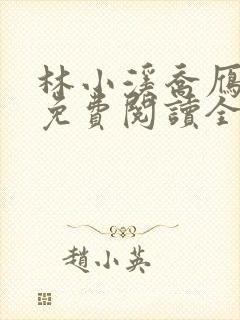 林小溪喬雁
免費閱讀全
趙小英